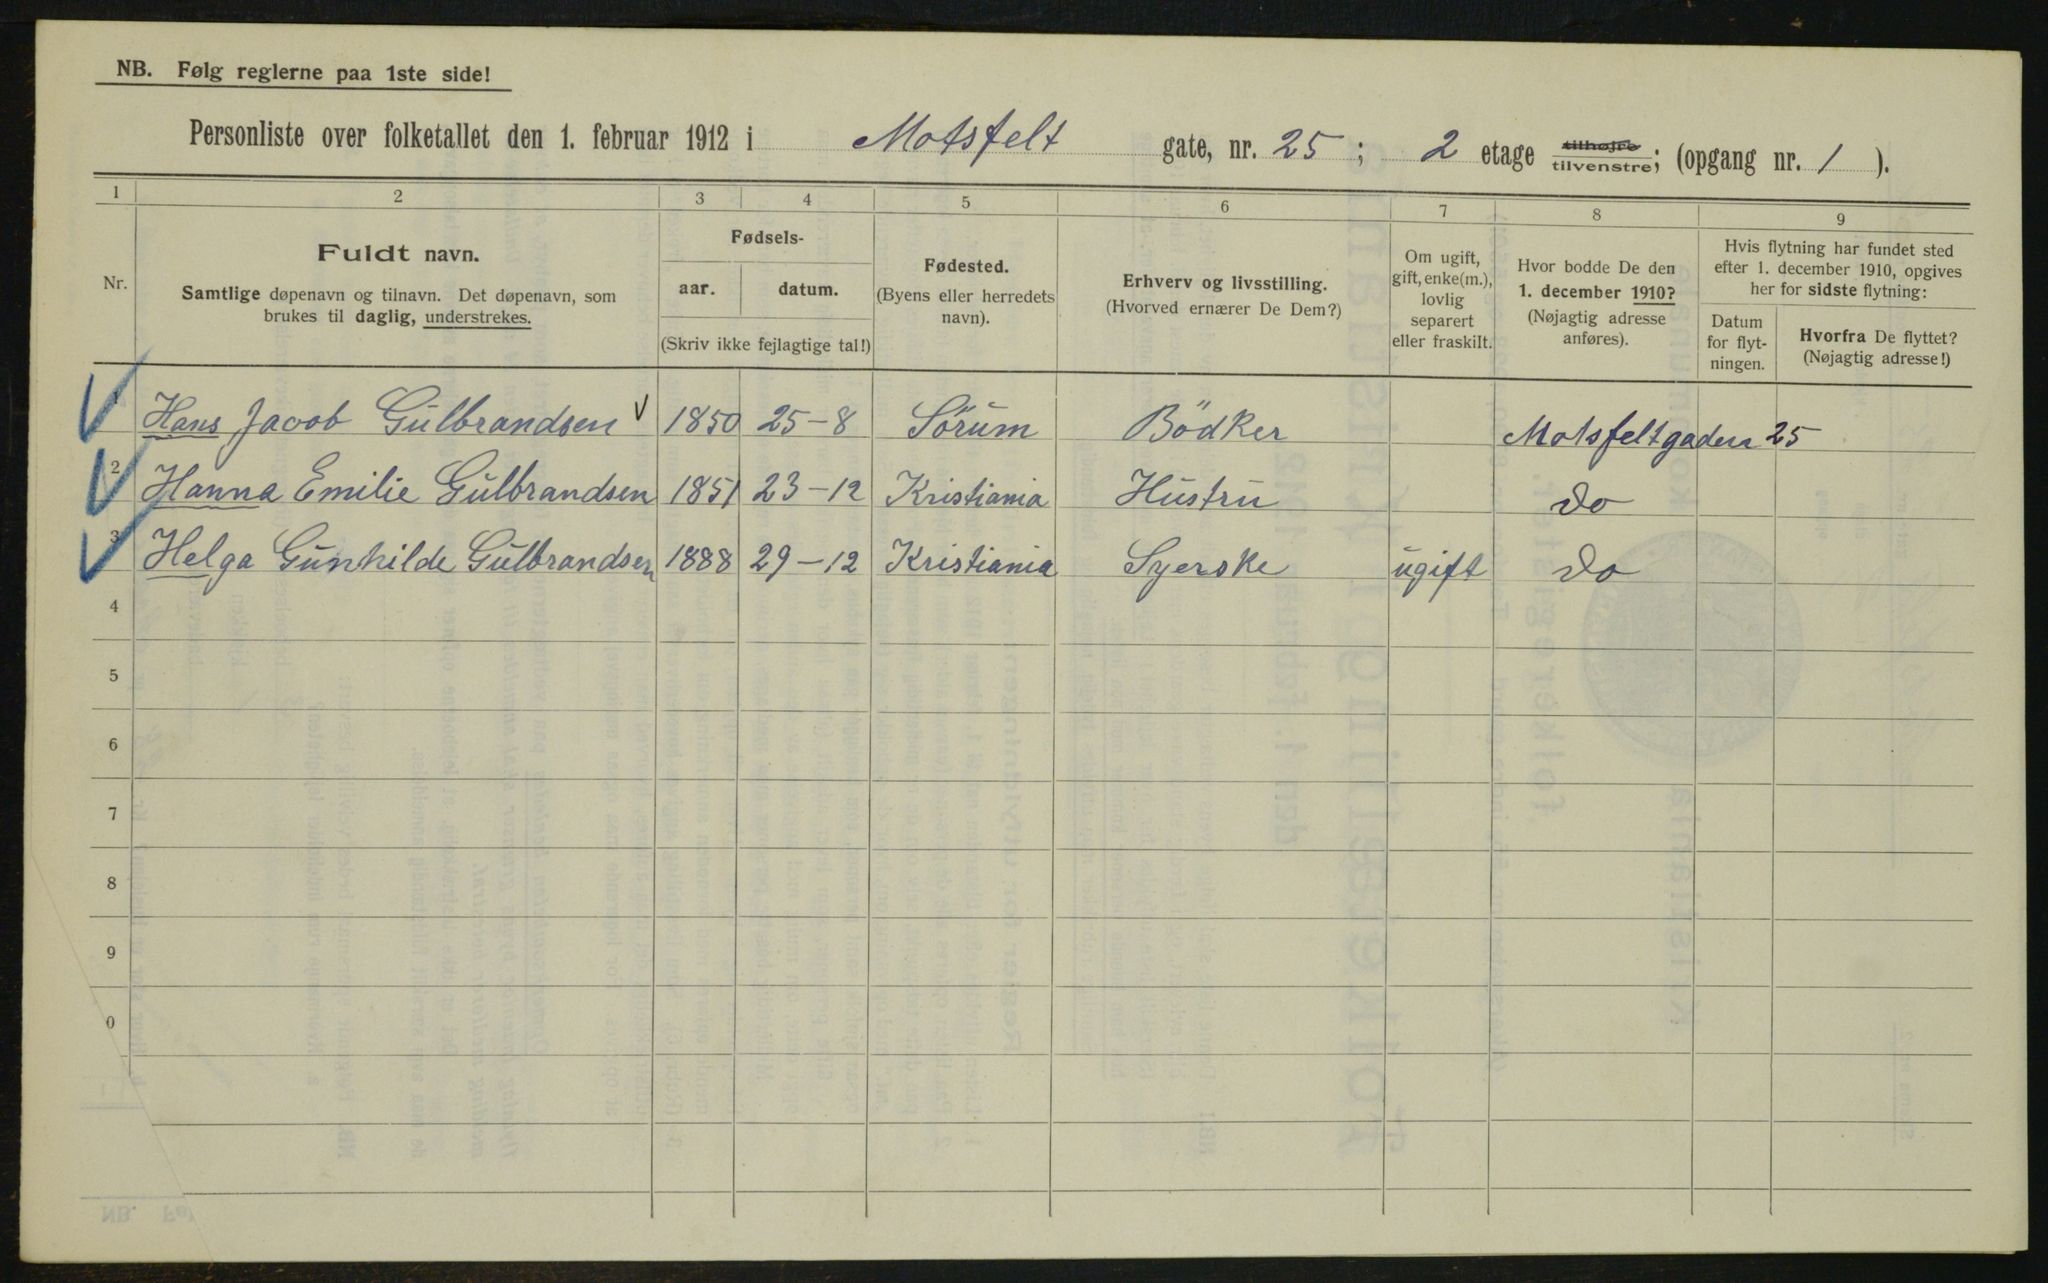 NB. Følg reglerne paa 1ste side!
Personliste over folketallet den 1. februar 1912 i Motsfelt gate, nr. 25 ; 2 etage tilhøjre tilvenstre; (opgang nr. 1 ).
1 2 3 4 5 6 7 8 9
Nr.
Fuldt navn.
Samtlige døpenavn og tilnavn. Det døpenavn, som
brukes til daglig, understrekes.
Fødsels-
aar. datum.
(Skriv ikke fejlagtige tal!)
Fødested.
(Byens eller herredets
navn).
Erhverv og livsstilling.
(Hvorved ernærer De Dem?)
Om ugift,
gift, enke(m.),
lovlig
separert
eller fraskilt.
Hvor bodde De den
1. december 1910?
(Nøjagtig adresse
anføres).
Hvis flytning har fundet sted
efter 1. december 1910, opgives
her for sidste flytning:
Datum
for flyt-
ningen.
Hvorfra De flyttet?
(Nøjagtig adresse!)
1 Hans Jacob Gulbrandsen 1850 25-8 Sörum Bödker Motsfeltgaden 25
2 Hanna Emilie Gulbrandsen 1851 23-12 Kristiania Hustru Do
3 Helga Gunhilde Gulbrandsen 1888 29-12 Kristiania Syerske ugift Do
4
5
6
7
8
9
0